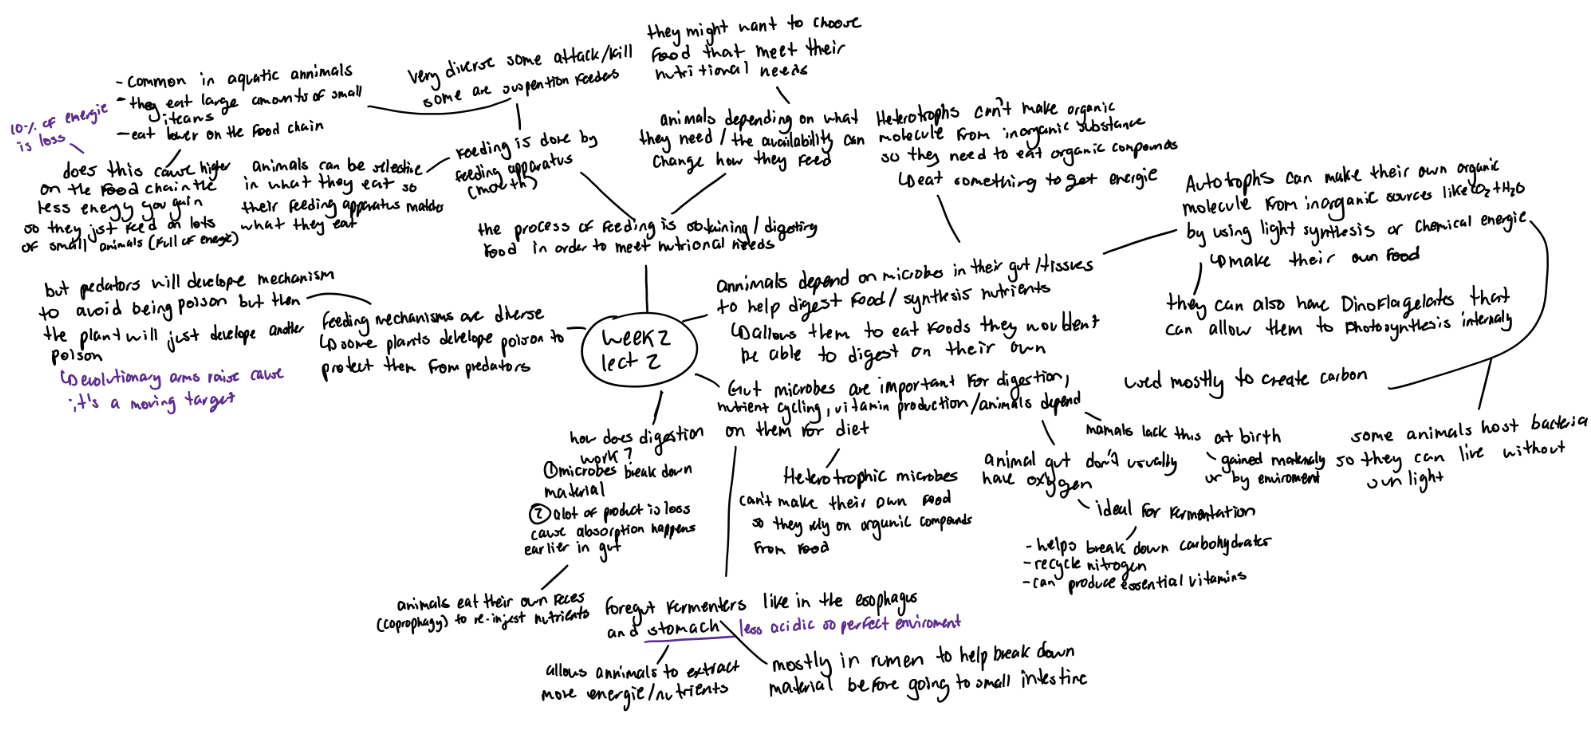 they might want to choose
food that meet their
nutritional needs
very diverse some attack/kill
some are suspention feeders
- Common in aquatic annimals
- they eat large amounts of small
items
- eat lower on the food chain
10% of energie
is loss
does this cause higher
on the food chain the
less energy you gain
so they just feed on lots
of small animals (full of energie)
animals can be selective
in what they eat so
their feeding apparatus matter
what they eat
Feeding is done by
feeding apparatus
(mouth)
animals depending on what
they need / the availability can
change how they feed
Heterotrophs can't make organic
molecule from inorganic substance
so they need to eat organic compounds
↳ eat something to get energie
Autotrophs can make their own organic
molecule from inorganic sources like CO2 + H2O
by using light synthesis or chemical energie
↳ make their own food
they can also have Dinoflagelates that
can allow them to photosynthesis internaly
the process of feeding is obtaining / digesting
food in order to meet nutrional needs
but pedators will develope mechanism
to avoid being poison but then
the plant will just develope another
poison
↳ evolutionary arms raise cause
it's a moving target
Feeding mechanisms are dherse
↳ some plants develope poison to
protect them from predators
week 2
lect 2
annimals depend on microbes in their gut / tissues
to help digest food / synthesis nutrients
↳ allows them to eat foods they wouldent
be able to digest on their own
used mostly to create carbon
some animals host bacteria
so they can live without
sun light
Gut microbes are important for digestion,
nutrient cycling, vitamin production / animals depend
on them for diet
mamals lack this at birth
gained maternaly
or by enviroment
animal gut don't usually
have oxygen
ideal for fermentation
- helps break down carbohydrates
- recycle nitrogen
- can produce essential vitamins
Heterotrophic microbes
can't make their own food
so they rely on organic compounds
from food
how does digestion
work?
① microbes break down
material
② alot of product is loss
cause absorption happens
earlier in gut
animals eat their own feces
(coprophagy) to re-injest nutrients
foregut fermenters like in the esophagus
and stomach less acidic so perfect enviroment
allows annimals to extract
more energie/nutrients
mostly in rumen to help break down
material before going to small intestine